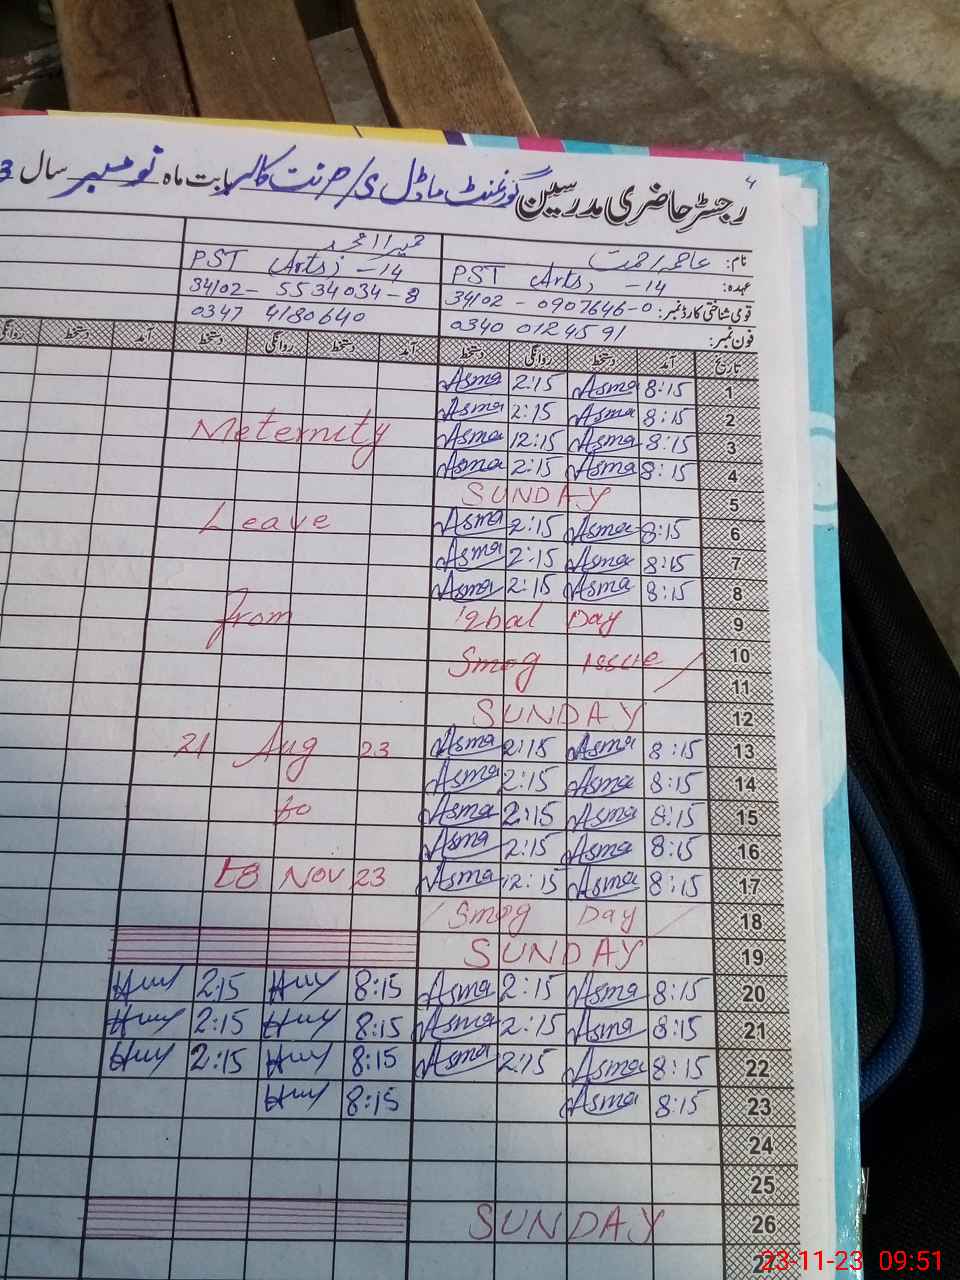 رجسٹر حاضری مدرسین گورنمنٹ ماڈل بابت ماہ نومبر سال 3
نام: عاصمہ رحمت
عہدہ: PST (Arts) -14 PST (Arts) -14
قومی شناختی کارڈ نمبر: 34102 - 0907646-0 34102 - 5534034-8
فون نمبر: 0340 0124591 0347 4180640
تاریخ آمد دستخط روانگی دستخط آمد دستخط روانگی دستخط آمد روانگی
1 8:15 Asma 2:15 Asma
2 8:15 Asma 2:15 Asma
Meternity
3 8:15 Asma 12:15 Asma
4 8:15 Asma 2:15 Asma
5 SUNDAY
Leave
6 8:15 Asma 2:15 Asma
7 8:15 Asma 2:15 Asma
8 8:15 Asma 2:15 Asma
from
9 Iqbal Day
10 Smog Issue /
11
12 SUNDAY
21 Aug 23
13 8:15 Asma 2:15 Asma
14 8:15 Asma 2:15 Asma
to
15 8:15 Asma 2:15 Asma
16 8:15 Asma 2:15 Asma
18 NOV 23
17 8:15 Asma 12:15 Asma
18 / Smog Day /
19 SUNDAY
20 8:15 Asma 2:15 Asma 8:15 2:15
21 8:15 Asma 2:15 Asma 8:15 2:15
22 8:15 Asma 2:15 Asma 8:15 2:15
23 8:15 Asma 8:15
24
25
26 SUNDAY
27
23-11-23 09:51